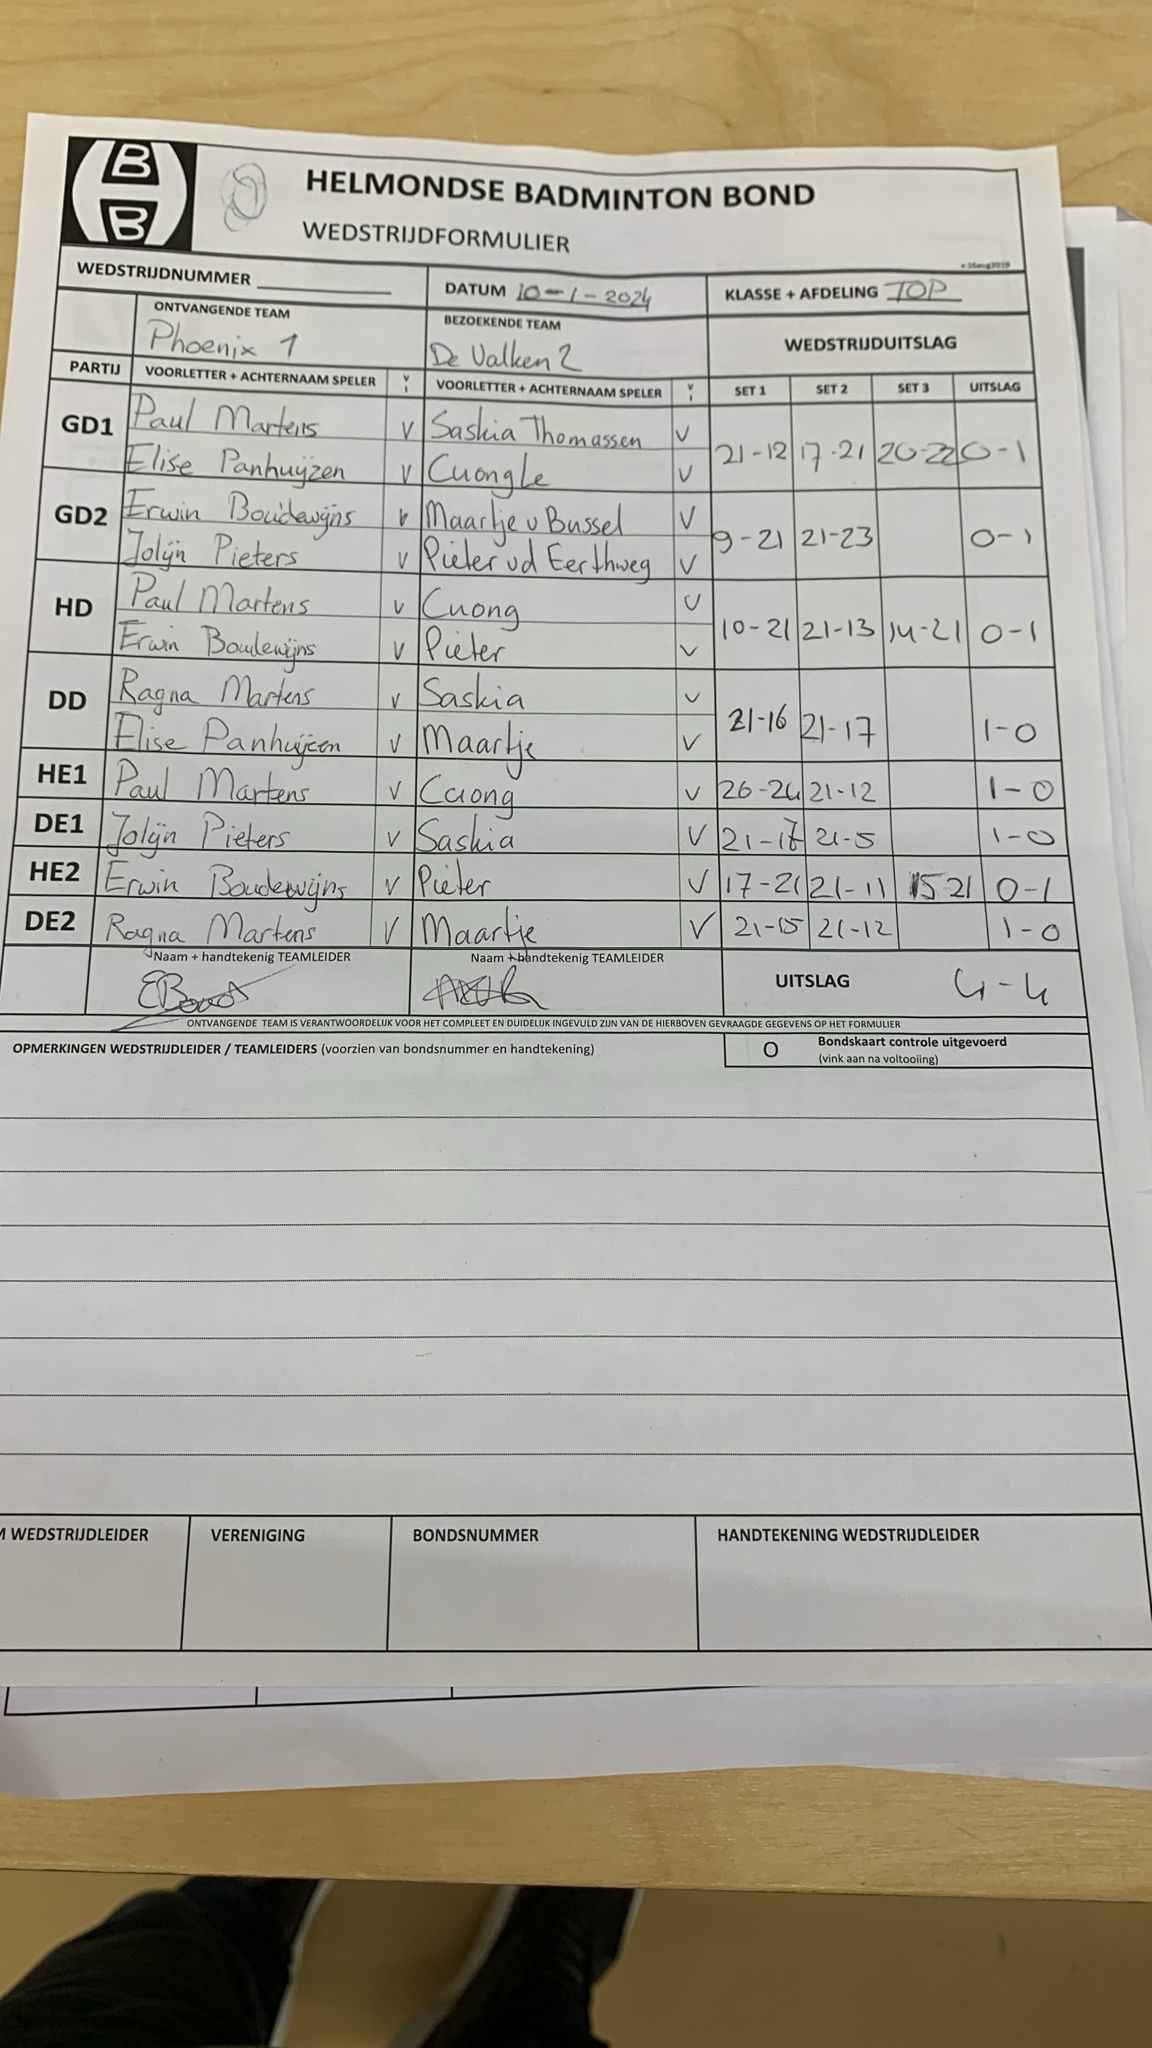 B
B
HELMONDSE BADMINTON BOND
WEDSTRIJDFORMULIER
v 16aug2019
WEDSTRIJDNUMMER
DATUM 10-1-2024
KLASSE + AFDELING TOP
ONTVANGENDE TEAM
Phoenix 1
BEZOEKENDE TEAM
De Valken 2
WEDSTRIJDUITSLAG
PARTIJ VOORLETTER + ACHTERNAAM SPELER V I VOORLETTER + ACHTERNAAM SPELER V I SET 1 SET 2 SET 3 UITSLAG
GD1 Paul Martens V Saskia Thomassen V
Elise Panhuijzen V Cuong Le V
21-12 17-21 20-22 0-1
GD2 Erwin Boudewijns V Maartje v Bussel V
Jolijn Pieters V Pieter vd Eerthweg V
9-21 21-23 0-1
HD Paul Martens V Cuong V
Erwin Boudewijns V Pieter V
10-21 21-13 14-21 0-1
DD Ragna Martens V Saskia V
Elise Panhuijzen V Maartje V
21-16 21-17 1-0
HE1 Paul Martens V Cuong V 26-24 21-12 1-0
DE1 Jolijn Pieters V Saskia V 21-17 21-5 1-0
HE2 Erwin Boudewijns V Pieter V 17-21 21-11 15-21 0-1
DE2 Ragna Martens V Maartje V 21-15 21-12 1-0
Naam + handtekenig TEAMLEIDER
Naam + handtekenig TEAMLEIDER
UITSLAG 4-4
ONTVANGENDE TEAM IS VERANTWOORDELIJK VOOR HET COMPLEET EN DUIDELIJK INGEVULD ZIJN VAN DE HIERBOVEN GEVRAAGDE GEGEVENS OP HET FORMULIER
OPMERKINGEN WEDSTRIJDLEIDER / TEAMLEIDERS (voorzien van bondsnummer en handtekening)
O Bondskaart controle uitgevoerd
(vink aan na voltooiing)
M WEDSTRIJDLEIDER VERENIGING BONDSNUMMER HANDTEKENING WEDSTRIJDLEIDER